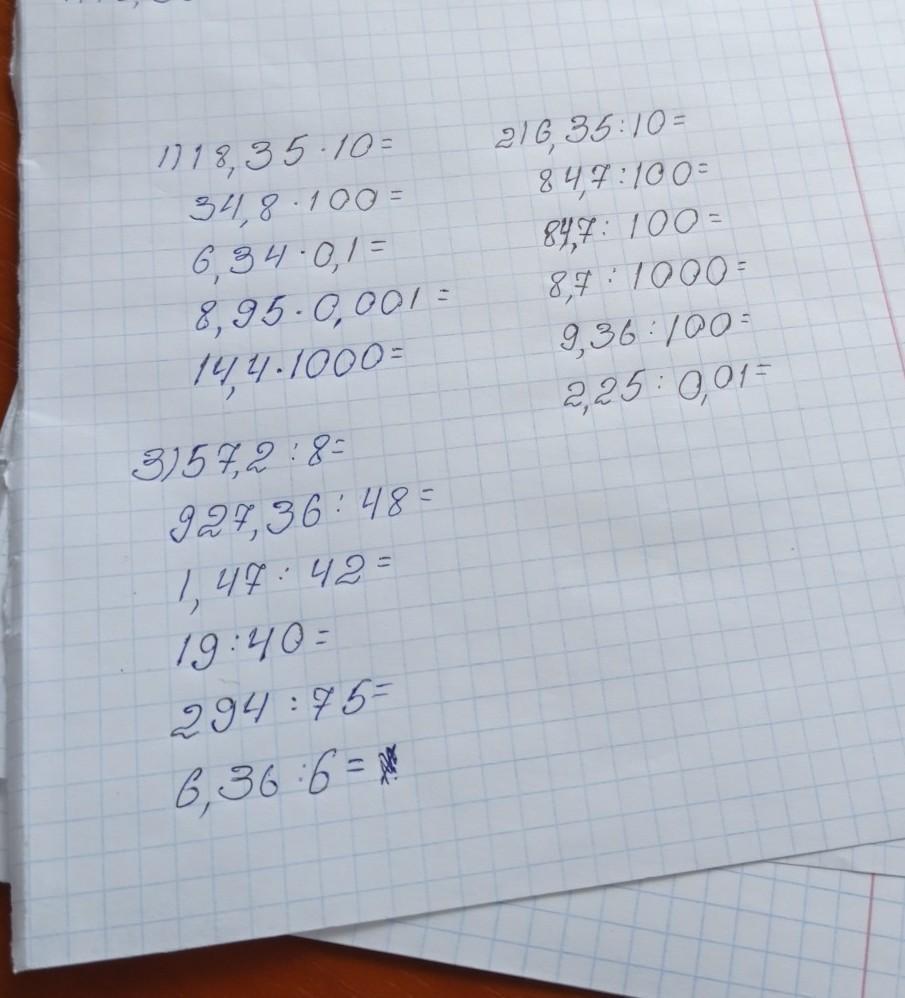 1) 18,35 · 10 =
34,8 · 100 =
6,34 · 0,1 =
8,95 · 0,001 =
14,4 · 1000 =
2) 6,35 : 10 =
84,7 : 100 =
84,7 : 100 =
8,7 : 1000 =
9,36 : 100 =
2,25 : 0,01 =
3) 57,2 : 8 =
927,36 : 48 =
1,47 : 42 =
19 : 40 =
294 : 75 =
6,36 : 6 =